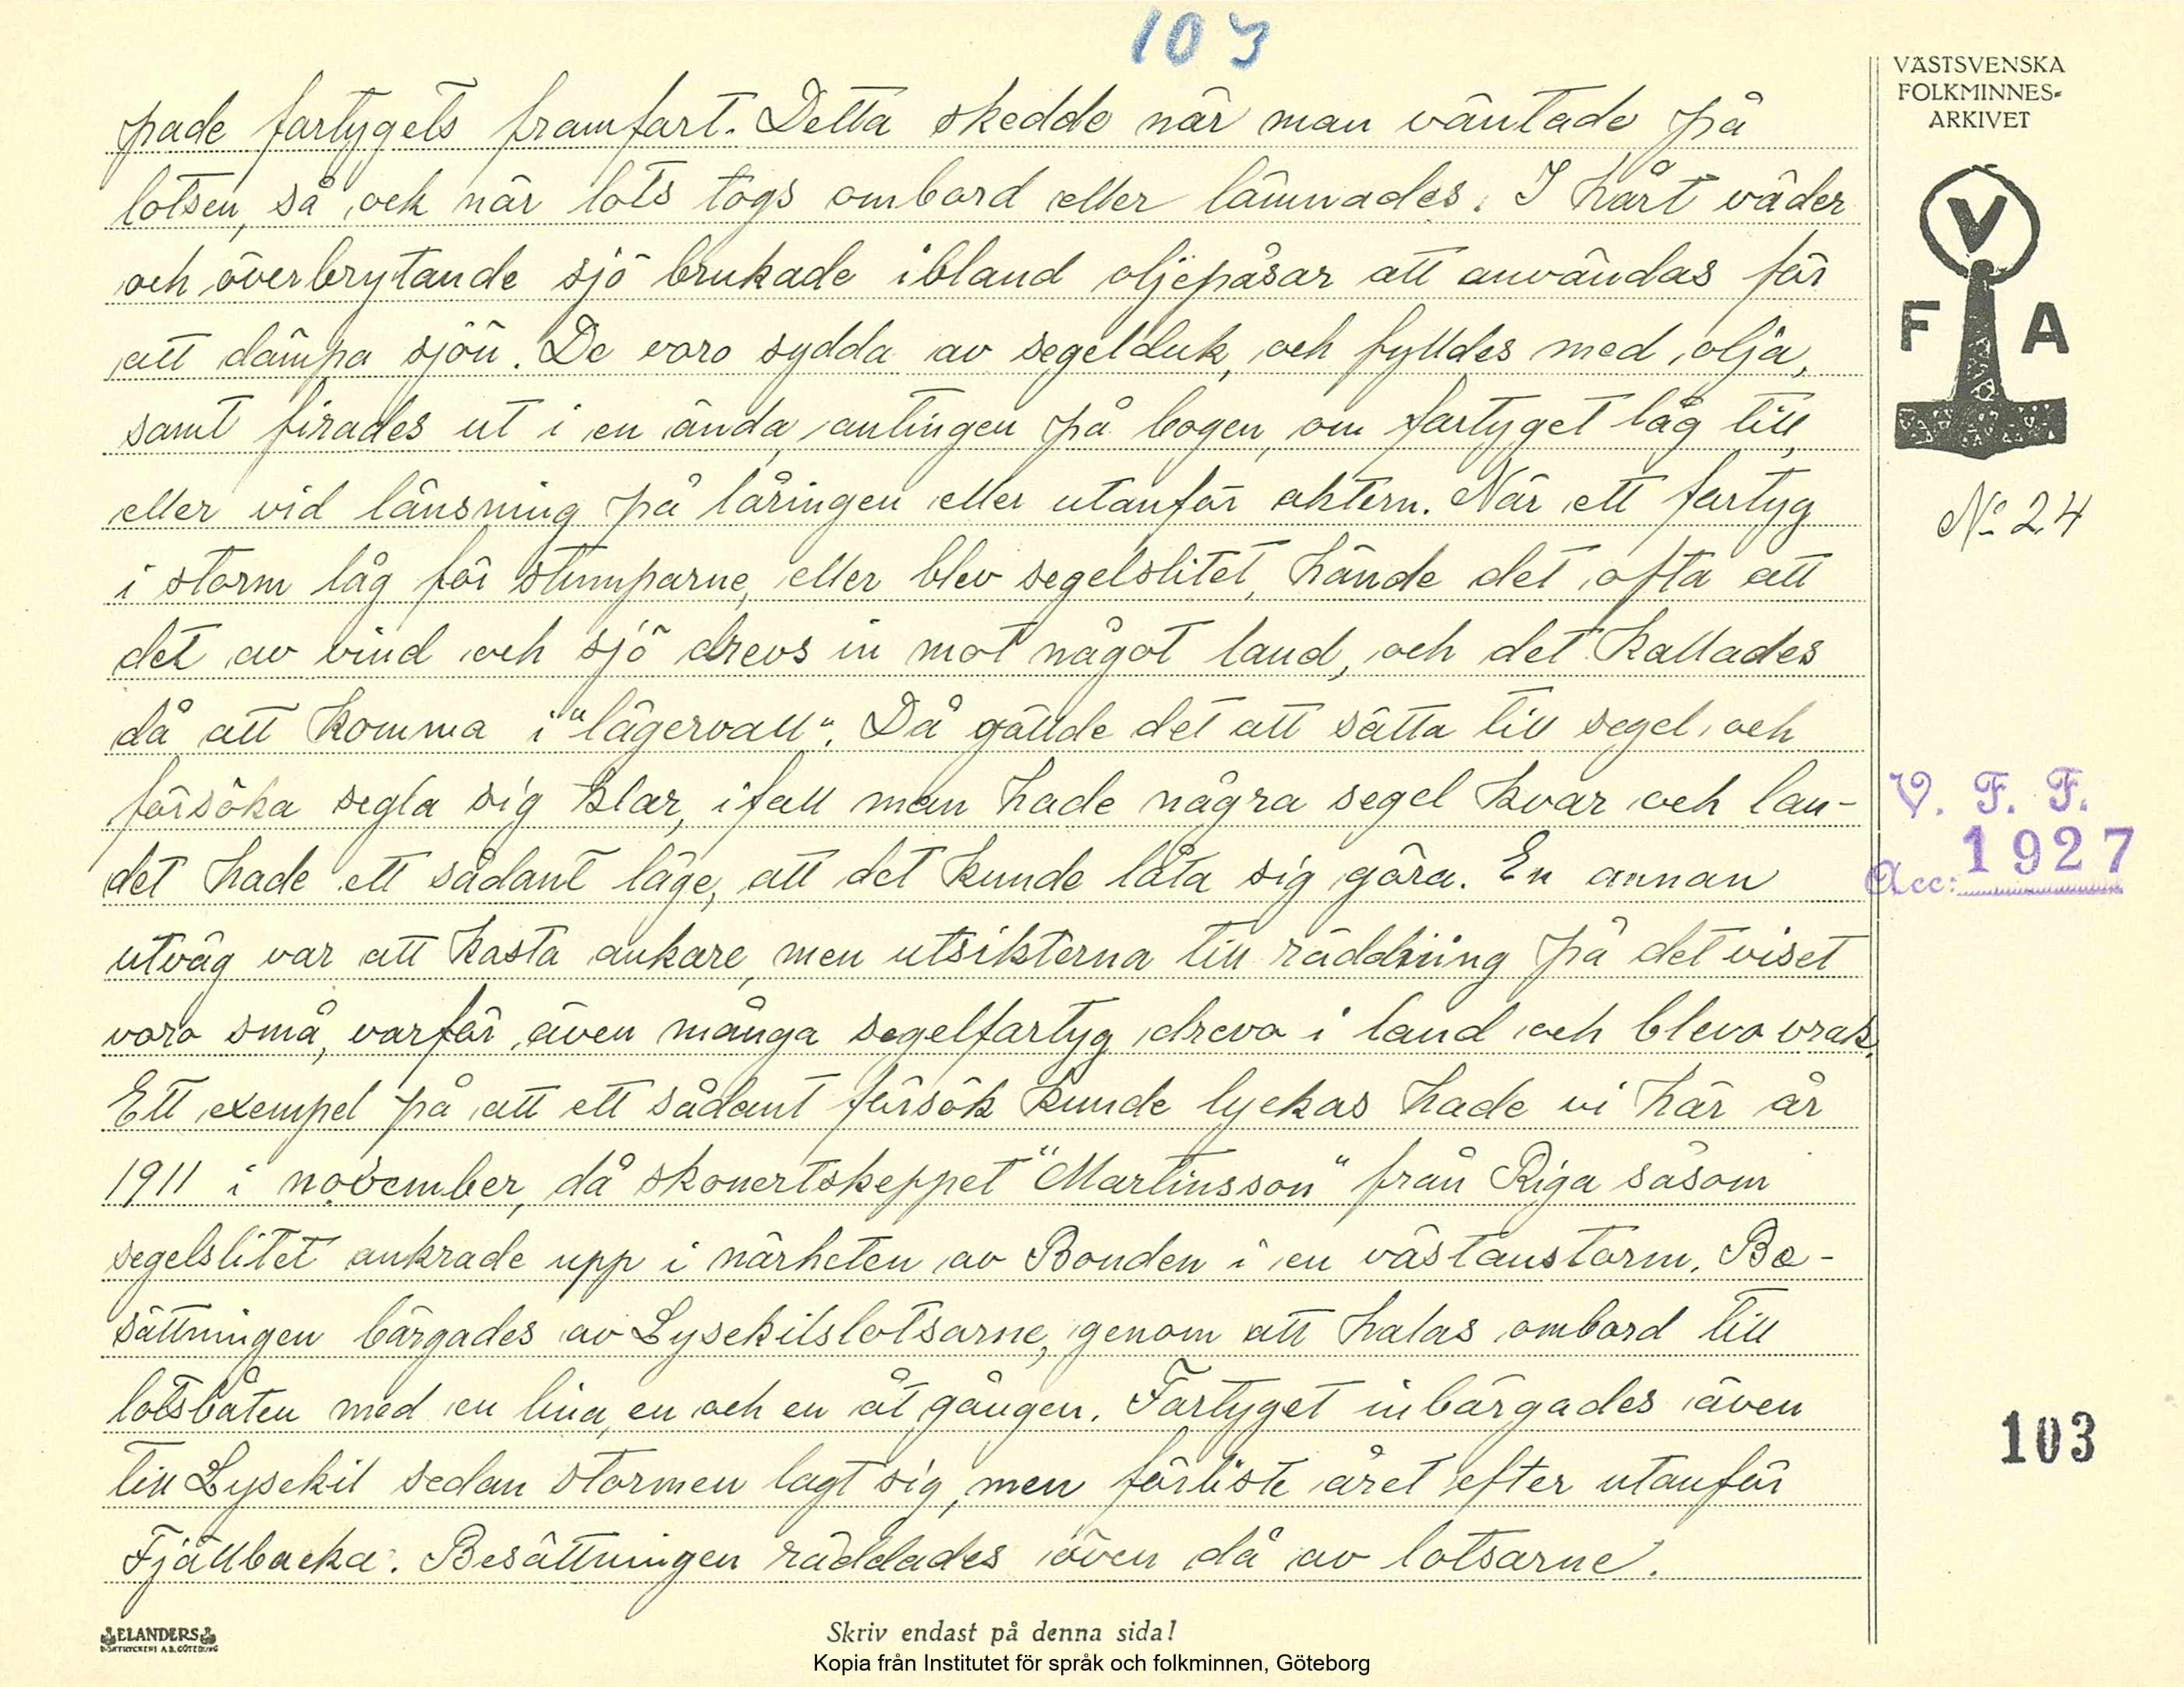 103
pade fartygets framfart. Detta skedde när man väntade på
lotsen, så ock när lots togs ombord eller lämnades. I hårt väder
och överbrytande sjö brukade ibland oljepåsar att användas för
att dämpa sjön. De voro sydda av segelduk, och fylldes med olja,
samt firades ut i en ända, antingen på bogen, om fartyget låg till,
eller vid länsning på låringen eller utanför aktern. När ett fartyg
i storm låg för stumparne, eller blev segelslitet, hände det ofta att
det av vind och sjö drevs in mot något land, och det kallades
då att komma i "lägervall". Då gällde det att sätta till segel, och
försöka segla sig klar, ifall man hade några segel kvar och lan-
det hade ett sådant läge, att det kunde låta sig göra. En annan
utväg var att kasta ankare, men utsikterna till räddning på det viset
voro små, varför även många segelfartyg drevo i land och blevo vrak.
Ett exempel på att ett sådant försök kunde lyckas hade vi här år
1911 i november, då skonertskeppet "Martinsson" från Riga såsom
segelslitet ankrade upp i närheten av Bonden i en västanstorm. Be-
sättningen bärgades av Lysekilslotsarne, genom att halas ombord till
lotsbåten med en lina, en och en åt gången. Fartyget inbärgades även
till Lysekil sedan stormen lagt sig, men förliste året efter utanför
Fjällbacka. Besättningen räddades även då av lotsarne.
VÄSTSVENSKA
FOLKMINNES-
ARKIVET
V
F A
No 24
V. F. F.
1927
Acc:
103
ELANDERS
BOKTRYCKERI A.B. GÖTEBORG
Skriv endast på denna sida!
Kopia från Institutet för språk och folkminnen, Göteborg